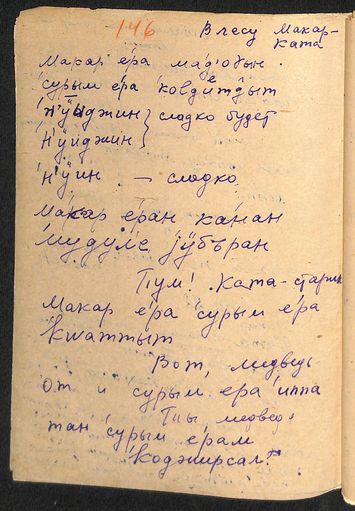 146 В лесу Макар-
Ката
Макар ера мадобын.
сурым ера ковдетдыт
н'ӱыджин } сладко будет
н'ӱиджин
н'ӱин — сладко
Макар еран канан
мудуме јӱбъран
Пум! Ката-старик
Макар ера сурым ера
кваттыт
Вот, медведь
от и сурым ера иппа
Ты медведь
тан сурым ерам
коджирсал.